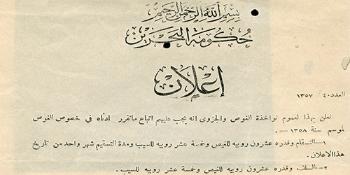 بسم الله الرحمن الرحيم
حكومة البحرين
إعلان
العدد ٤٠/ ١٣٥٧
نعلن بهذا لعموم نواخذة الغوص والجزوى انه يجب عليهم اتباع ماتقرر ادناه في خصوص الغوص
لموسم سنة ١٣٥٨ —
١—السلقام وقدره عشرون روبيه للغيص وخمسة عشر روبيه للسيب ومدة التسقيم شهر واحد من تاريخ
هذا الاعلان.
٢— وقدره عشر روبيه للغيص وخمسة عشر روبيه للسيب.